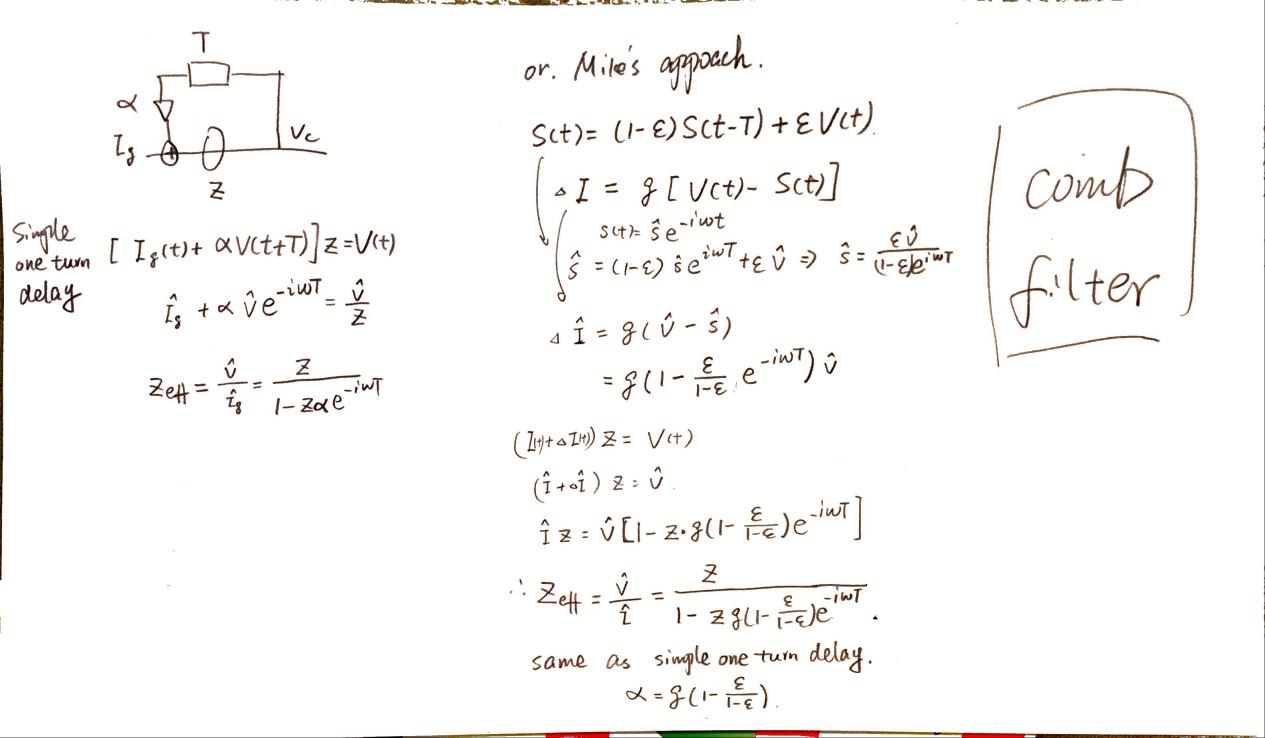 T
α
I_g
V_c
Z
Simple
one turn
delay
[ I_g(t) + αV(t+T) ] Z = V(t)
Î_g + α V̂ e^{-iωT} = V̂/Z
Z_eff = V̂/î_g = Z/(1 - Zαe^{-iωT})
or. Mike's appoach.
S(t) = (1-ε) S(t-T) + ε V(t).
△I = g [ V(t) - S(t) ]
S(t) = ŝ e^{-iωt}
ŝ = (1-ε) ŝ e^{iωT} + ε V̂ ⇒ ŝ = εV̂/((1-ε)e^{iωT})
△Î = g ( V̂ - ŝ )
= g (1 - ε/(1-ε) e^{-iωT}) V̂
(I(t) + △I(t)) Z = V(t)
(Î + △Î) Z = V̂
Î Z = V̂ [1 - Z·g (1 - ε/(1-ε)) e^{-iωT}]
∴ Z_eff = V̂/Î = Z/(1 - Z g (1 - ε/(1-ε)) e^{-iωT}).
same as simple one turn delay.
α = g (1 - ε/(1-ε)).
comb
filter